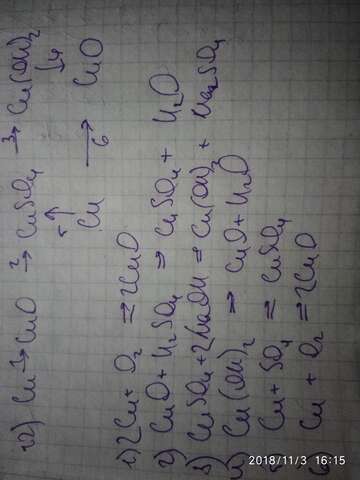 12) Cu →¹ CuO →² CuSO₄ →³ Cu(OH)₂
5↑ ↓4
Cu →₆ CuO
1) 2Cu + O₂ = 2CuO
2) CuO + H₂SO₄ = CuSO₄ + H₂O
3) CuSO₄ + 2NaOH = Cu(OH)₂ + Na₂SO₄
4) Cu(OH)₂ → CuO + H₂O
5) Cu + SO₄ = CuSO₄
6) Cu + O₂ = 2CuO
2018/11/3 16:15